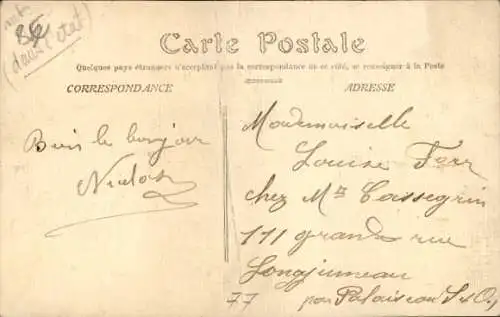 8€
(dans l'état)
Carte Postale
Quelques pays étrangers n'acceptant pas la correspondance de ce côté, se renseigner à la Poste
CORRESPONDANCE
ADRESSE
Bien le bonjour
Mademoiselle
Louise Ferr
chez Mr Cassegrin
111 grande rue
Longjumeau
par Palaiseau S & O,
77